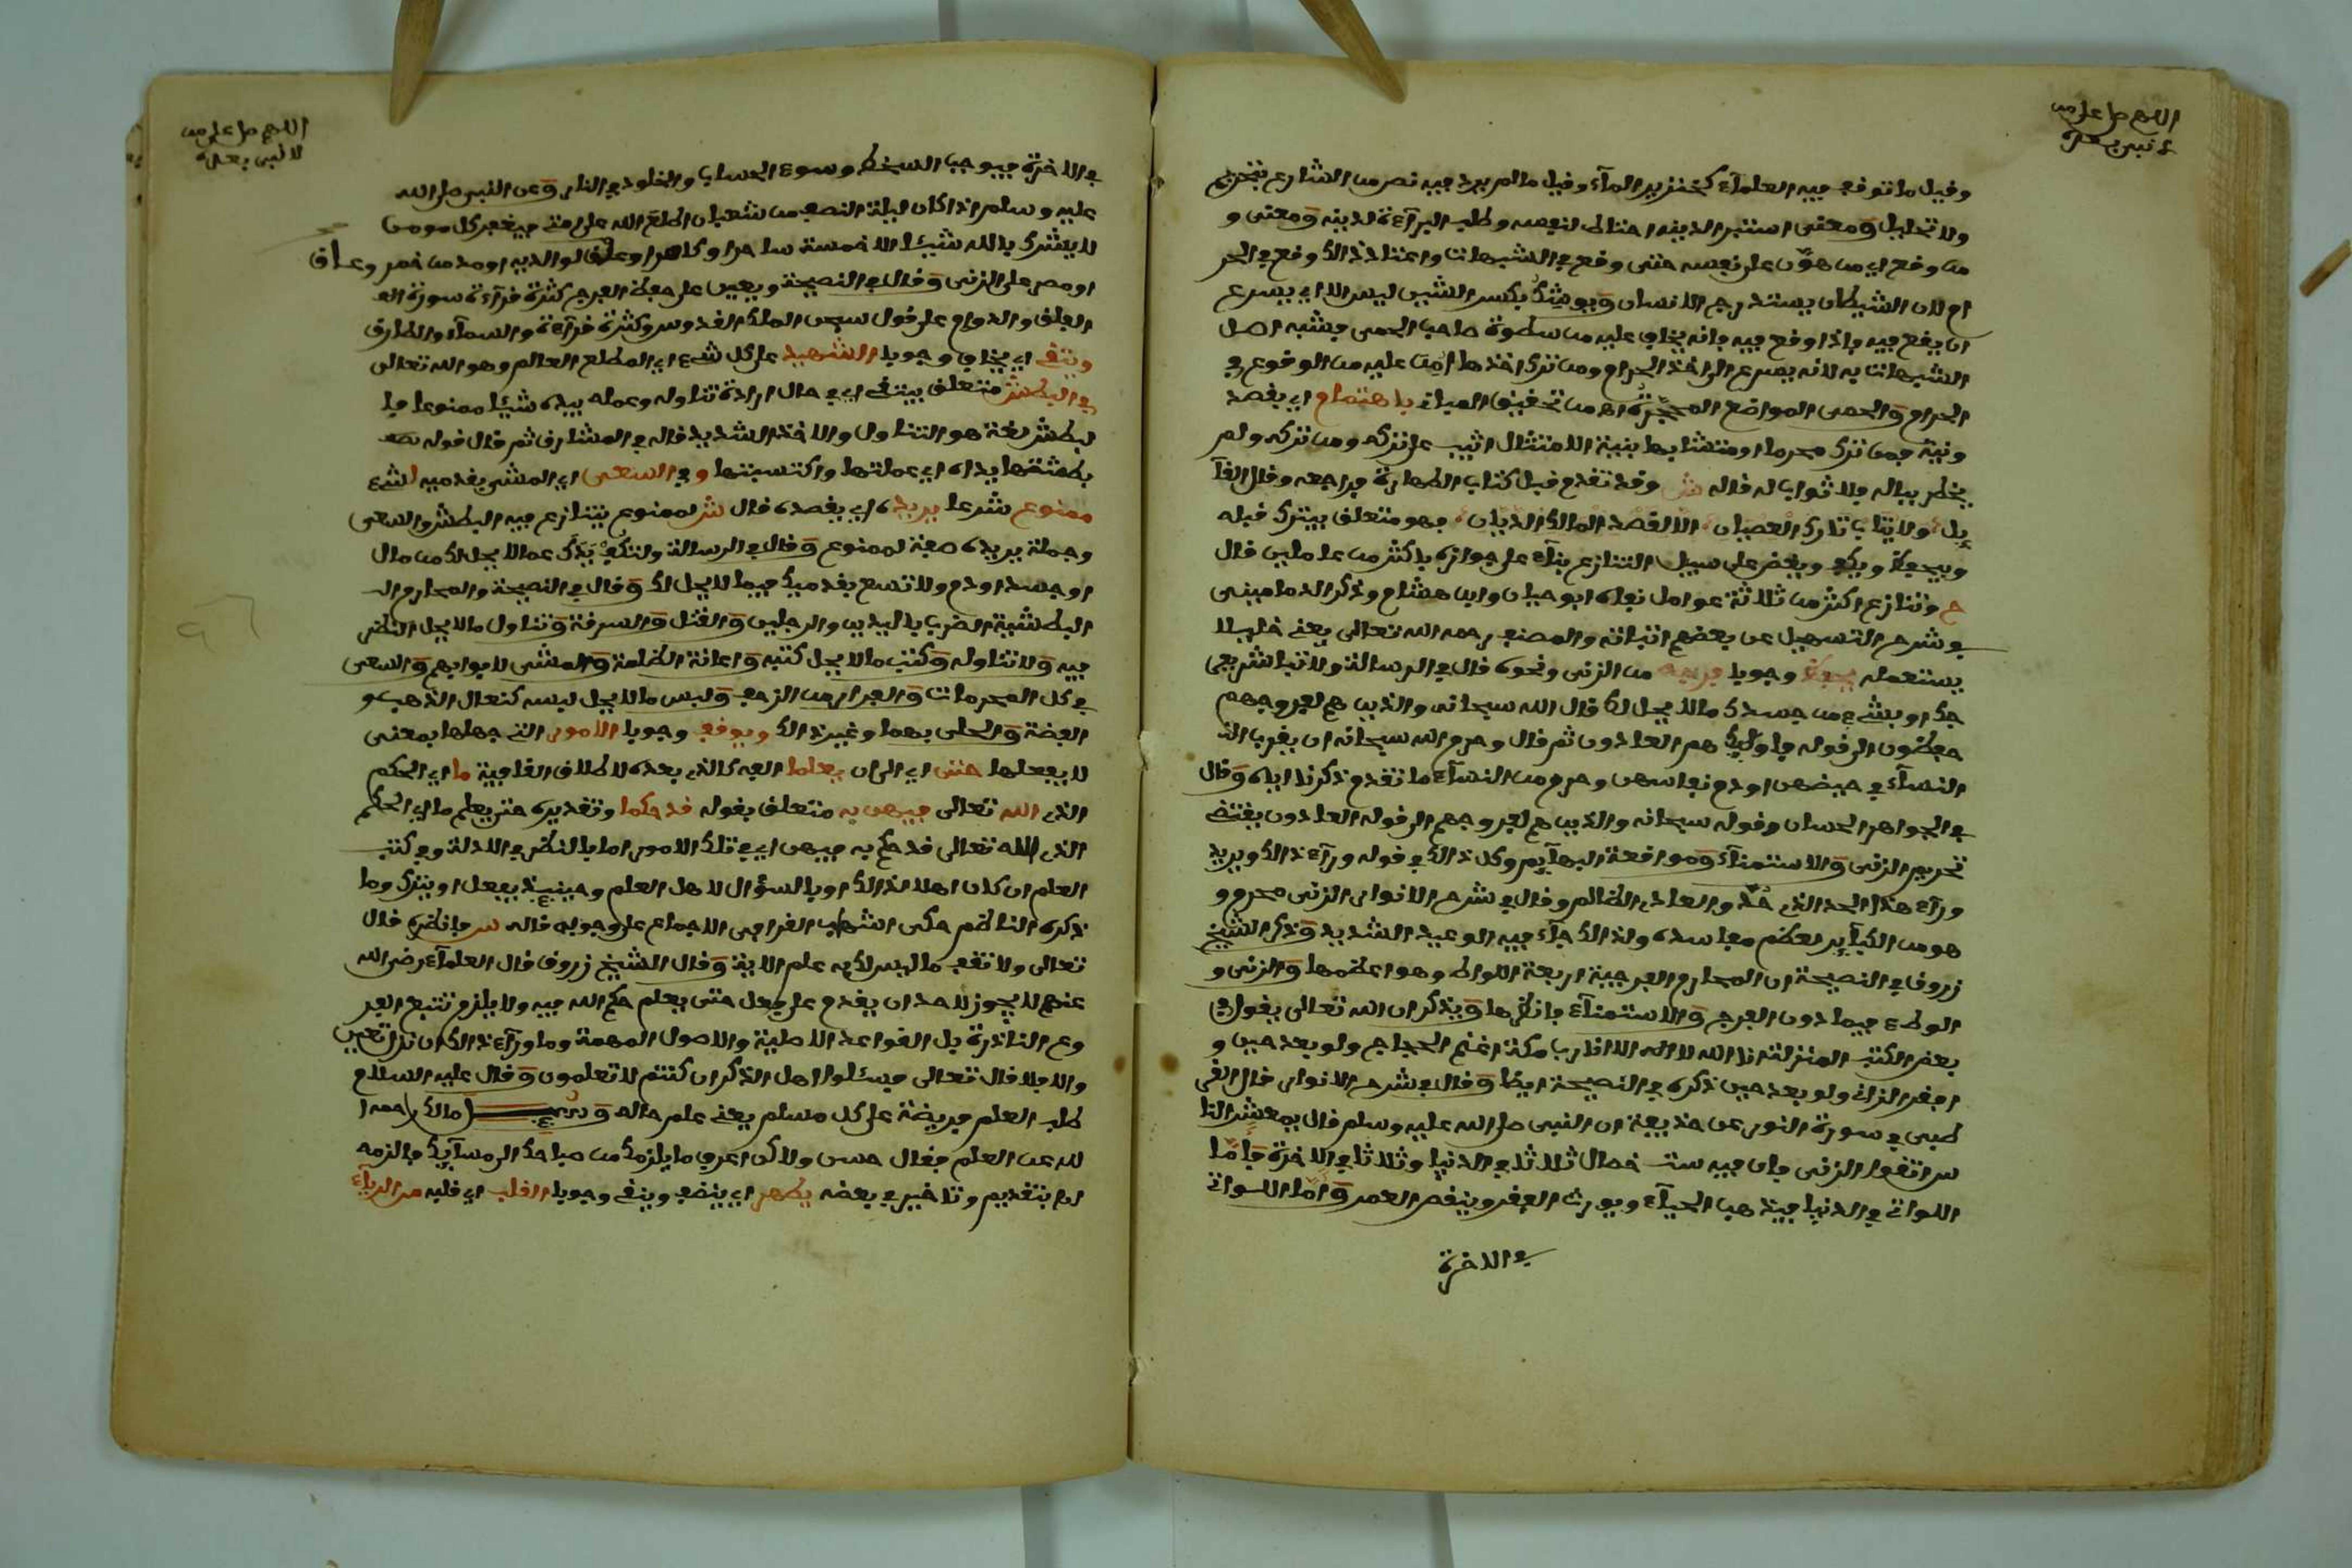 اللهم صل على من
لا نبي بعده
وقيل ما توقف فيه العلمآء كخنزير المآء وقيل ما لم يرد فيه نص من الشارع بتحريم
ولا تحليل ومعنى استبرا لدينه احتاط لنفسه وطلب البرآءة لدينه ومعنى و
من وقع اي من هوّن على نفسه حتى وقع في الشبهات واعتاد ذالك وقع في الحر
ام لان الشيطان يستدرج الانسان ويوشك بكسر الشين ليس الا اي يسرع
ان يقع فيه واذا وقع فيه فانه يخاف عليه من سطوة صاحب الحمى فشبه اصل
الشبهات به لانه يسرع الى اخذ الحرام ومن ترك اخذها امن عليه من الوقوع في
الحرام والحمى المواضع المحجّرة اه من تحقيق المباني باهتمام اي بقصد
ونية فمن ترك محرما او متشابها بنية الامتثال اثيب على تركه ومن تركه ولم
يخطر بباله فلا ثواب له قاله ش وقد تقدم قبل كتاب الطهارة فراجعه وقال القآ
يل ولا يثاب تارك العصيان الا لقصد المالك الديان فهو متعلق بيترك قبله
وبيحفظ ويكف ويغض على سبيل التنازع بنآء على جوازه باكثر من عاملين قال
ح وتنازع اكثر من ثلاثة عوامل نفاه ابو حيان وابن هشام وذكر الدماميني
في شرح التسهيل عن بعضهم اثباته والمصنف رحمه الله تعالى يعني خليلا
يستعمله يحفظ وجوبا فرجه من الزنى ونحوه قال في الرسالة ولا تباشر بفر
جك او بشيء من جسدك ما لا يحل لك قال الله سبحانه والذين هم لفروجهم
حفظون الى قوله فاولئك هم العادون ثم قال وحرم الله سبحانه ان يقرب النـ
النسآء في حيضهن او دم نفاسهن وحرم من النسآء ما تقدم ذكرنا اياه وقال
في الجواهر الحسان وقوله سبحانه والذين هم لفروجهم الى قوله العادون يقتضي
تحريم الزنى والاستمنآء ومواقعة البهآيم وكل ذالك في قوله ورآء ذالك ويريد
ورآء هذا الحد الذي حد والعادي الظالم وقال في شرح الانوار الزنى محرم و
هو من الكبآير لعظم مفاسده ولذالك جآء فيه الوعيد الشديد وذكر الشيخ
زروق في النصيحة ان المحارم الفرجية اربعة اللواط وهو اعظمها والزنى و
الوطء فيما دون الفرج والاستمنآء فانظرها ويذكر ان الله تعالى يقول في
بعض الكتب المنزلة انا الله لا اله الا انا رب مكة اغني الحجاج ولو بعد حين و
افقر الزاني ولو بعد حين ذكره في النصيحة ايضا وقال في شرح الانوار قال القر
طبي في سورة النور عن حذيفة ان النبي صلى الله عليه وسلم قال يمعشر النا
س اتقوا الزنى فان فيه ست خصال ثلاثا في الدنيا وثلاثا في الاخرة فامّا
اللواتي في الدنيا فيذهب الحيآء ويورث الفقر وينقص العمر وامّا اللواتي
في الاخرة
اللهم صل على من
لا نبي بعده
في الاخرة فيوجب السخط وسوء الحساب والخلود في النار وعن النبي صلى الله
عليه وسلم اذا كان ليلة النصف من شعبان اطلع الله على امتي فيغفر كل مومن
لا يشرك بالله شيئا الا خمسة ساحرا وكاهنا وعاق لوالديه او مدمن خمر وعاق
او مصر على الزنى وقال في النصيحة ويعين على حفظ الفرج كثرة قرآءة سورة الفـ
الفلق والدوام على قول سبحن الملك القدوس وكثرة قرآءة والسمآء والطارق
ويتقي اي يخاف وجوبا الشهيد على كل شيء اي المطلع العالم وهو الله تعالى
في البطش متعلق بيتقي اي في حال ارادة تناوله وعمله بيده شيئا ممنوعا فا
لبطش لغة هو التناول والاخذ الشديد قاله في المشارق ثم قال قوله
بطشتها يداه اي عملتها واكتسبتها وفي السعي اي المشي بقدميه لشيء
ممنوع شرعا يريده اي يقصده قال ش لممنوع يتنازع فيه البطش والسعي
وجملة يريده صفة لممنوع وقال في الرسالة ولتكف يدك عما لا يحل لك من مال
او جسد او دم ولا تسع بقدميك فيما لا يحل لك وقال في النصيحة والمحارم الـ
البطشية الضرب باليدين والرجلين والقتل والسرقة وتناول ما لا يحل النظر
فيه ولا تناوله وكتب ما لا يحل كتبه واعانة الظلمة والمشي لابوابهم والسعي
في كل المحرمات والفرار من الزحف ولبس ما لا يحل لبسه كنعال الذهب و
الفضة والحلى بهما وغير ذالك ويوقف وجوبا الامور التي جهلها بمعنى
لا يفعلها حتى اي الى ان يعلما الفه كالذي بعده لاطلاق القافية ما اي الحكم
الذي الله تعالى فيهن به متعلق بقوله قد حكما وتقديره حتى يعلم ما اي الحكم
الذي الله تعالى قد حكم به فيهن اي في تلك الامور اما بالنظر في الادلة وفي كتب
العلم ان كان اهلا لذالك او بالسؤال لاهل العلم وحينئذ يفعل او يترك وما
ذكره الناظم حكى الشهاب القرافي الاجماع على وجوبه قاله س فانظره قال
تعالى ولا تقف ما ليس لك به علم الاية وقال الشيخ زروق قال العلمآء رضي الله
عنهم لا يجوز لاحد ان يقدم على فعل حتى يعلم حكم الله فيه ولا يلزم تتبع الفر
وع النادرة بل القواعد الاصلية والاصول المهمة وما ورآء ذالك ان نزل تعين
والا فلا قال تعالى فسئلوا اهل الذكر ان كنتم لا تعلمون وقال عليه السلام
طلب العلم فريضة على كل مسلم يعني علم حاله وسئل مالك رحمه ا
لله عن العلم فقال حسن ولاكن اعرف ما يلزمك من صباحك الى مسآيك فالزمه
اه بتقديم وتاخير في بعضه يطهر اي ينضف وينقي وجوبا القلب اي قلبه من الريآء